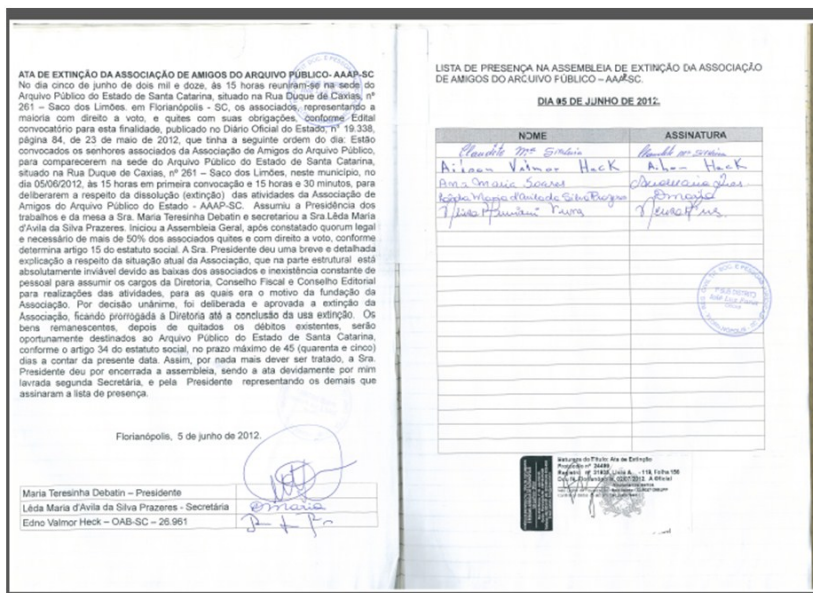 ATA DE EXTINÇÃO DA ASSOCIAÇÃO DE AMIGOS DO ARQUIVO PÚBLICO- AAAP-SC
No dia cinco de junho de dois mil e doze, às 15 horas reuniram-se na sede do
Arquivo Público do Estado de Santa Catarina, situado na Rua Duque de Caxias, nº
261 – Saco dos Limões. em Florianópolis - SC, os associados, representando a
maioria com direito a voto, e quites com suas obrigações, conforme Edital
convocatório para esta finalidade, publicado no Diário Oficial do Estado, n° 19.338,
página 84, de 23 de maio de 2012, que tinha a seguinte ordem do dia: Estão
convocados os senhores associados da Associação de Amigos do Arquivo Público,
para comparecerem na sede do Arquivo Público do Estado de Santa Catarina,
situado na Rua Duque de Caxias, nº 261 – Saco dos Limões, neste município, no
dia 05/06/2012, às 15 horas em primeira convocação e 15 horas e 30 minutos, para
deliberarem a respeito da dissolução (extinção) das atividades da Associação de
Amigos do Arquivo Público do Estado - AAAP-SC. Assumiu a Presidência dos
trabalhos e da mesa a Sra. Maria Teresinha Debatin e secretariou a Sra.Lêda Maria
d'Avila da Silva Prazeres. Iniciou a Assembleia Geral, após constatado quorum legal
e necessário de mais de 50% dos associados quites e com direito a voto, conforme
determina artigo 15 do estatuto social. A Sra. Presidente deu uma breve e detalhada
explicação a respeito da situação atual da Associação, que na parte estrutural está
absolutamente inviável devido as baixas dos associados e inexistência constante de
pessoal para assumir os cargos da Diretoria, Conselho Fiscal e Conselho Editorial
para realizações das atividades, para as quais era o motivo da fundação da
Associação. Por decisão unânime, foi deliberada e aprovada a extinção da
Associação, ficando prorrogada a Diretoria até a conclusão da usa extinção. Os
bens remanescentes, depois de quitados os débitos existentes, serão
oportunamente destinados ao Arquivo Público do Estado de Santa Catarina,
conforme o artigo 34 do estatuto social, no prazo máximo de 45 (quarenta e cinco)
dias a contar da presente data. Assim, por nada mais dever ser tratado, a Sra.
Presidente deu por encerrada a assembleia, sendo a ata devidamente por mim
lavrada segunda Secretária, e pela Presidente representando os demais que
assinaram a lista de presença.
Florianópolis, 5 de junho de 2012.
Maria Teresinha Debatin – Presidente
Lêda Maria d'Avila da Silva Prazeres - Secretária
Edno Valmor Heck – OAB-SC – 26.961
LISTA DE PRESENÇA NA ASSEMBLEIA DE EXTINÇÃO DA ASSOCIAÇÃO
DE AMIGOS DO ARQUIVO PÚBLICO – AAAPSC.
DIA 05 DE JUNHO DE 2012.
NOME ASSINATURA
Valmor Heck Heck
Ana Maria Soares
Natureza do Título: Ata de Extinção